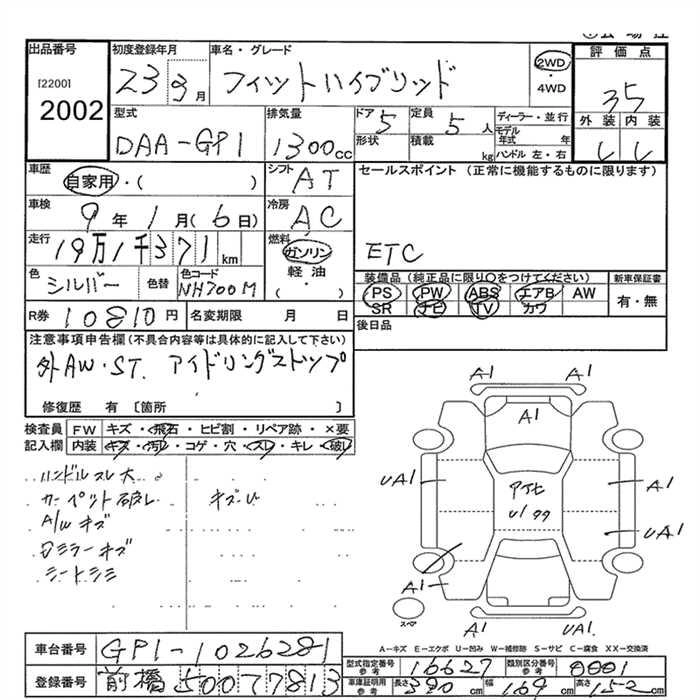 出品番号
[2200]
2002
初度登録年月
23 3 月
車名・グレード
フィットハイブリッド
2WD
・
4WD
評価点
35
外装 内装
型式
DAA-GP1
排気量
1300cc
ドア 5
形状
定員 5 人
積載 kg
ディーラー・並行
モデル年式 年
ハンドル 左・右
車歴
自家用・( )
シフト AT
セールスポイント(正常に機能するものに限ります)
ETC
車検
9年1月(6日)
冷房 AC
走行
19万1千371 km
燃料
ガソリン
軽油
( )
色
シルバー
色替
色コード
NH700M
装備品(純正品に限り○をつけてください)
PS PW ABS エアB AW
SR ナビ TV カワ
新車保証書
有・無
R券 10810円
名変期限 月 日
後日品
注意事項申告欄(不具合内容等は具体的に記入して下さい)
外AW・ST. アイドリングストップ
修復歴 有 〔箇所 〕
検査員 FW キズ・飛石・ヒビ割・リペア跡・×要
記入欄 内装 キズ・汚レ・コゲ・穴・スレ・キレ・破レ
ハンドルスレ大
カーペット破レ キズU
A/W キズ
ミラーキズ
シートシミ
A1 A1
A1
UA1 A1
UA1
A1
スペア
A1 UA1
A-キズ E-エクボ U-凹み W-補修跡 S-サビ C-腐食 XX-交換済
車台番号 GP1-1026281
登録番号 前橋500 7813
型式指定番号 参考 16627
類別区分番号 参考 0001
車庫証明用 参考 長さ 390cm 幅 169cm 高さ 152cm